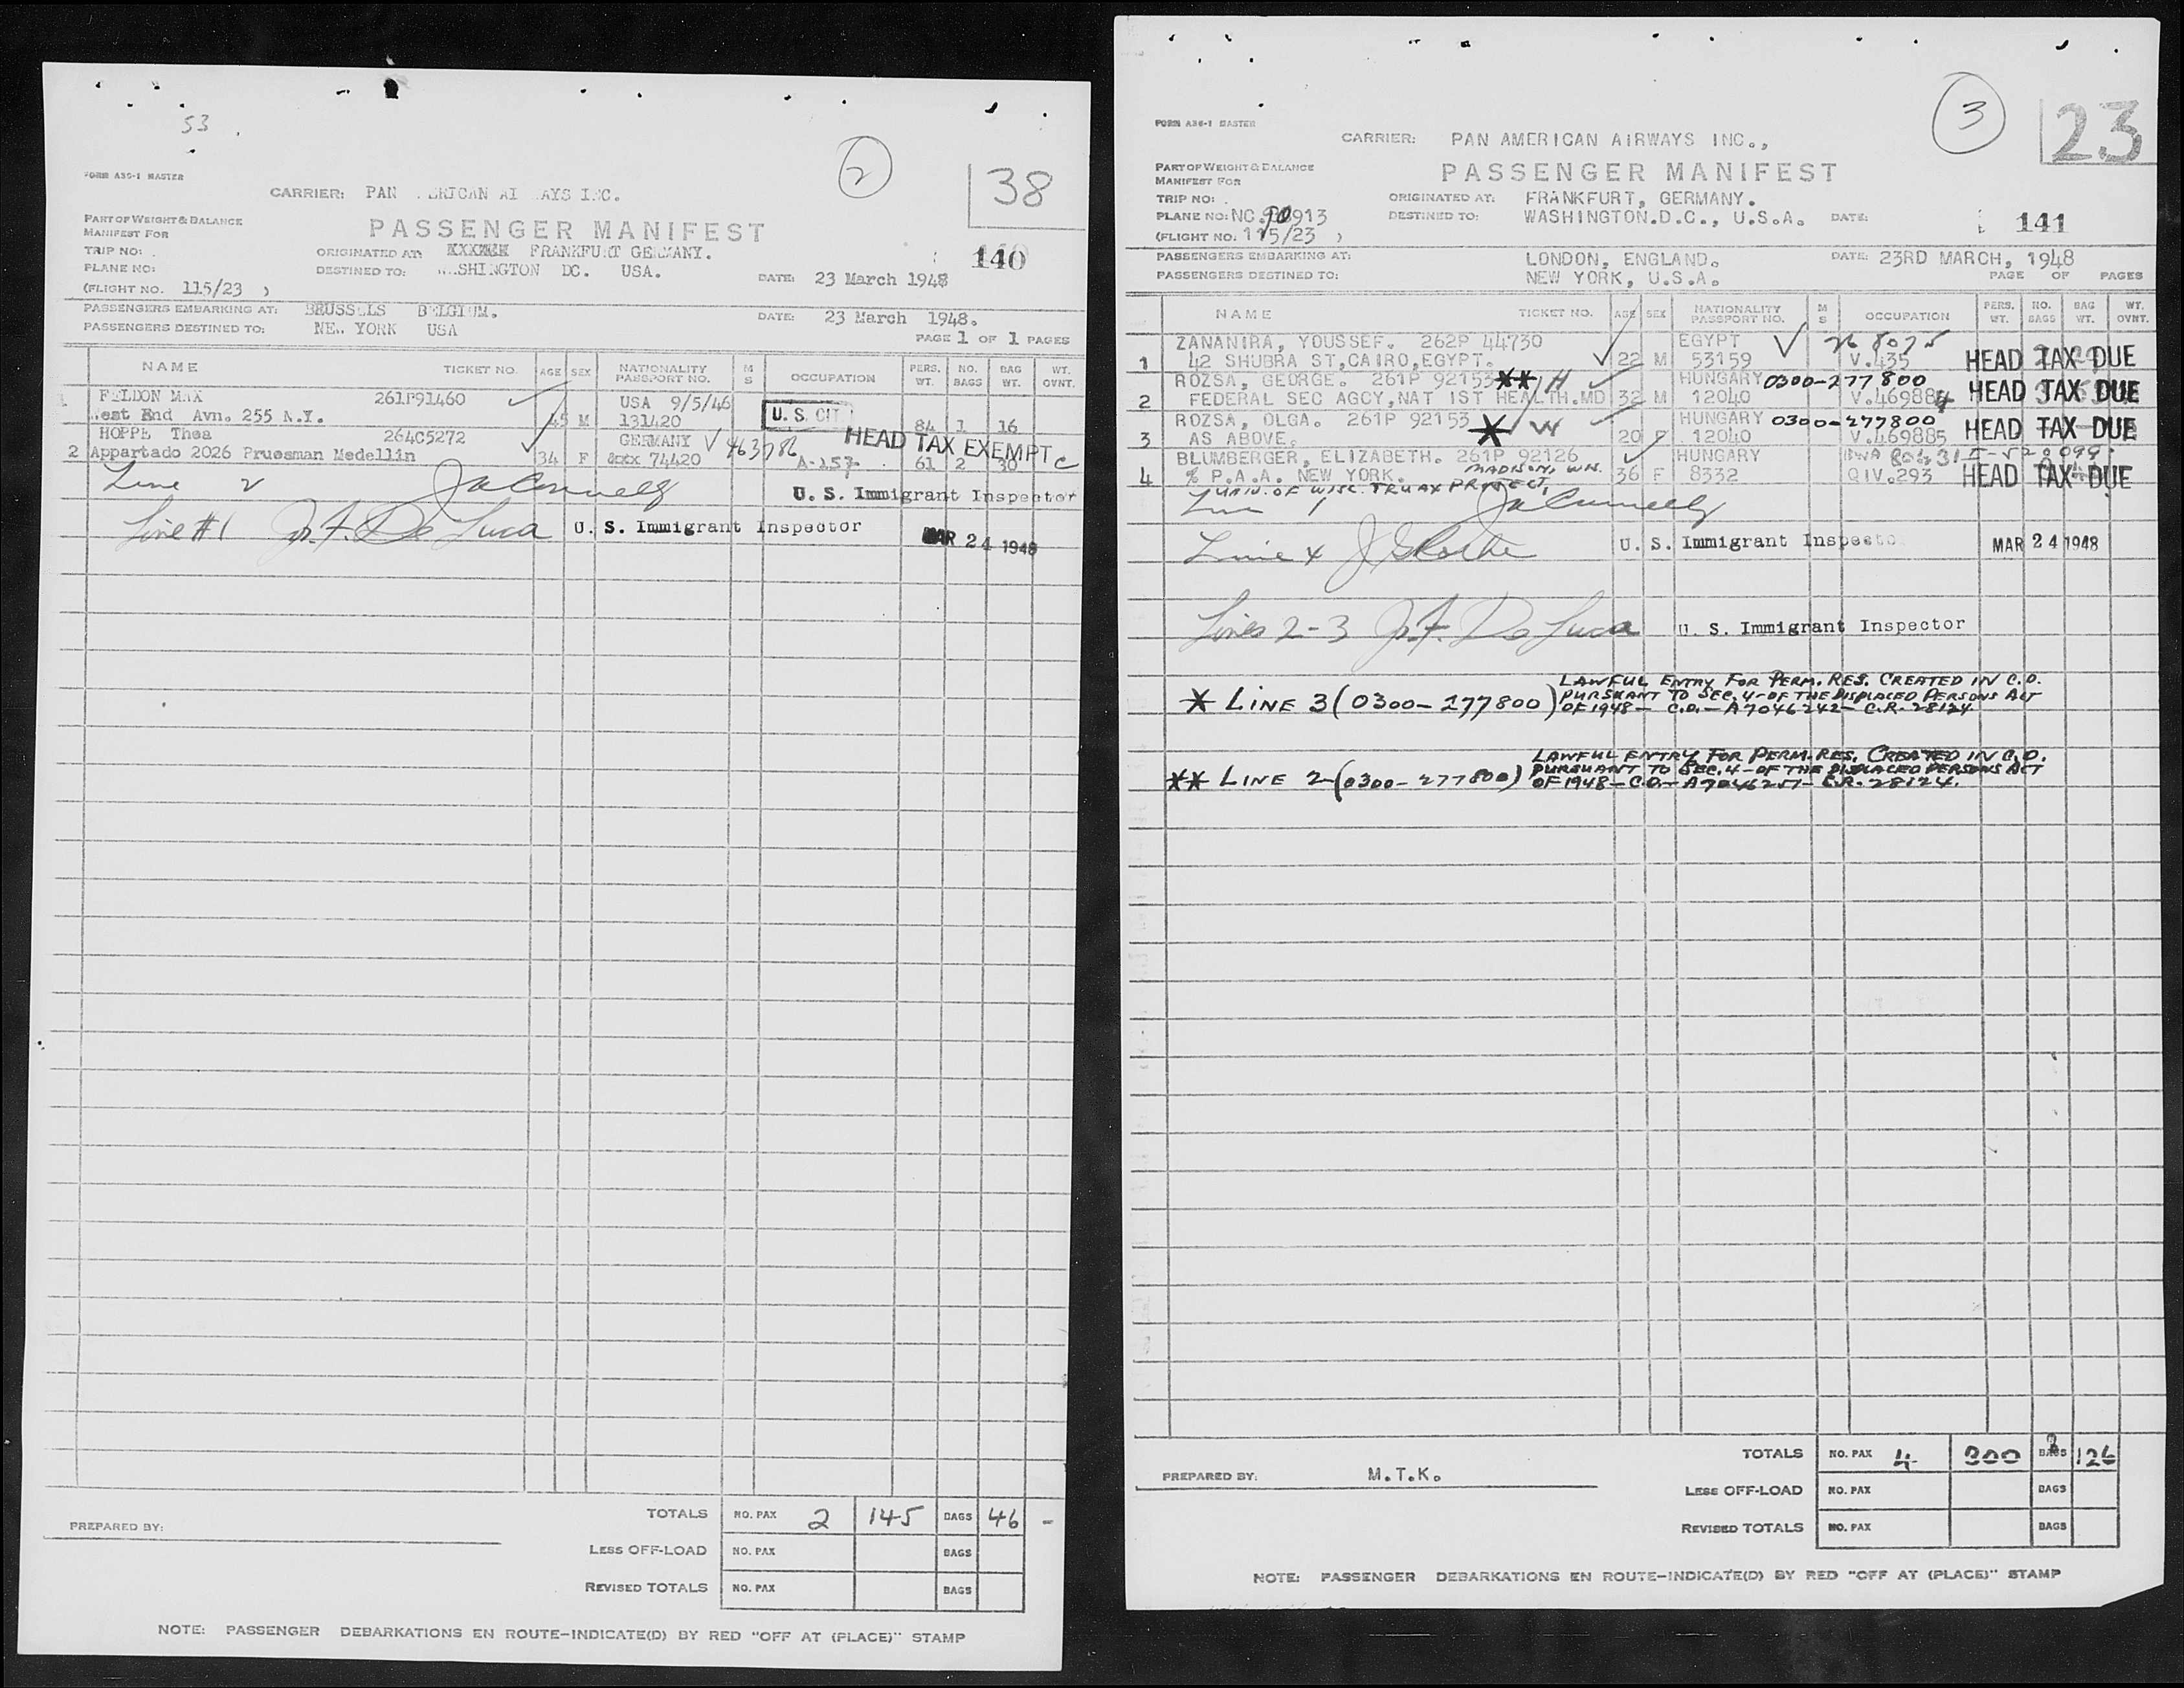 53
2
38
FORM A36-1 MASTER
CARRIER: PAN
PART OF WEIGHT & BALANCE
MANIFEST FOR
PASSENGER MANIFEST
140
TRIP NO:
ORIGINATED AT: FRANKFURT GERMANY.
PLANE NO:
DESTINED TO: DC. USA.
DATE: 23 March 1948
(FLIGHT NO. 115/23 )
PASSENGERS EMBARKING AT: BRUSSELS BELGIUM.
DATE: 23 March 1948.
PASSENGERS DESTINED TO: YORK USA
PAGE 1 OF 1 PAGES
NAME TICKET NO. AGE SEX NATIONALITY PASSPORT NO. M S OCCUPATION PERS. WT. NO. BAGS BAG WT. WT. OVNT.
FELDON MAX 261P91460 USA 9/5/46
End Avn. 255 N.Y. 45 M 131420 U.S. CIT 84 1 16
HOPPE Thea 264C5272 GERMANY 463786 HEAD TAX EXEMPT C
2 Appartado 2026 Pruesman Medellin 34 F 74420 A-157 61 2 30
Line 2 U. S. Immigrant Inspector
Line #1 De Luca U. S. Immigrant Inspector
MAR 24 1948
TOTALS NO. PAX 2 145 BAGS 46 -
PREPARED BY:
LESS OFF-LOAD NO. PAX BAGS
REVISED TOTALS NO. PAX BAGS
NOTE: PASSENGER DEBARKATIONS EN ROUTE-INDICATE(D) BY RED "OFF AT (PLACE)" STAMP
3
23
FORM A36-1 MASTER
CARRIER: PAN AMERICAN AIRWAYS INC.,
PART OF WEIGHT & BALANCE
MANIFEST FOR
PASSENGER MANIFEST
TRIP NO:
ORIGINATED AT: FRANKFURT, GERMANY.
PLANE NO: NC. 913
DESTINED TO: WASHINGTON.D.C., U.S.A. DATE:
141
(FLIGHT NO. 115/23 )
PASSENGERS EMBARKING AT: LONDON, ENGLAND. DATE: 23RD MARCH, 1948
PASSENGERS DESTINED TO: NEW YORK, U.S.A. PAGE OF PAGES
NAME TICKET NO. AGE SEX NATIONALITY PASSPORT NO. M S OCCUPATION PERS. WT. NO. BAGS BAG WT. WT. OVNT.
ZANANIRA, YOUSSEF. 262P 44730 EGYPT
1 42 SHUBRA ST,CAIRO,EGYPT. 22 M 53159 V.435 HEAD TAX DUE
ROZSA, GEORGE. 261P 92153 ** H HUNGARY 0300-277800
2 FEDERAL SEC AGCY,NAT IST HEALTH.MD 32 M 12040 V.469884 HEAD TAX DUE
ROZSA, OLGA. 261P 92153 * W HUNGARY 0300-277800
3 AS ABOVE. 20 F 12040 V.469885 HEAD TAX DUE
BLUMBERGER, ELIZABETH. 261P 92126 HUNGARY
4 % P.A.A. NEW YORK. MADISON, WN. 36 F 8332 QIV.293 HEAD TAX DUE
UNIV. OF WISC. TRUAX PROJECT,
Line 1
Line 4 U. S. Immigrant
MAR 24 1948
Lines 2-3 De Luca U. S. Immigrant Inspector
* LINE 3 (0300-277800) LAWFUL ENTRY FOR PERM. RES. CREATED IN C.O.
PURSUANT TO SEC. 4-OF THE DISPLACED PERSONS ACT
OF 1948- C.O.-A7046242- C.R. 28124
** LINE 2-(0300-277800) LAWFUL ENTRY FOR PERM. RES. CREATED IN C.O.
PURSUANT TO SEC. 4-OF THE DISPLACED PERSONS ACT
OF 1948-C.O.-A7046257- C.R. 28124.
TOTALS NO. PAX 4 300 8 BAGS 126
PREPARED BY: M.T.K.
LESS OFF-LOAD NO. PAX BAGS
REVISED TOTALS NO. PAX BAGS
NOTE: PASSENGER DEBARKATIONS EN ROUTE-INDICATE(D) BY RED "OFF AT (PLACE)" STAMP